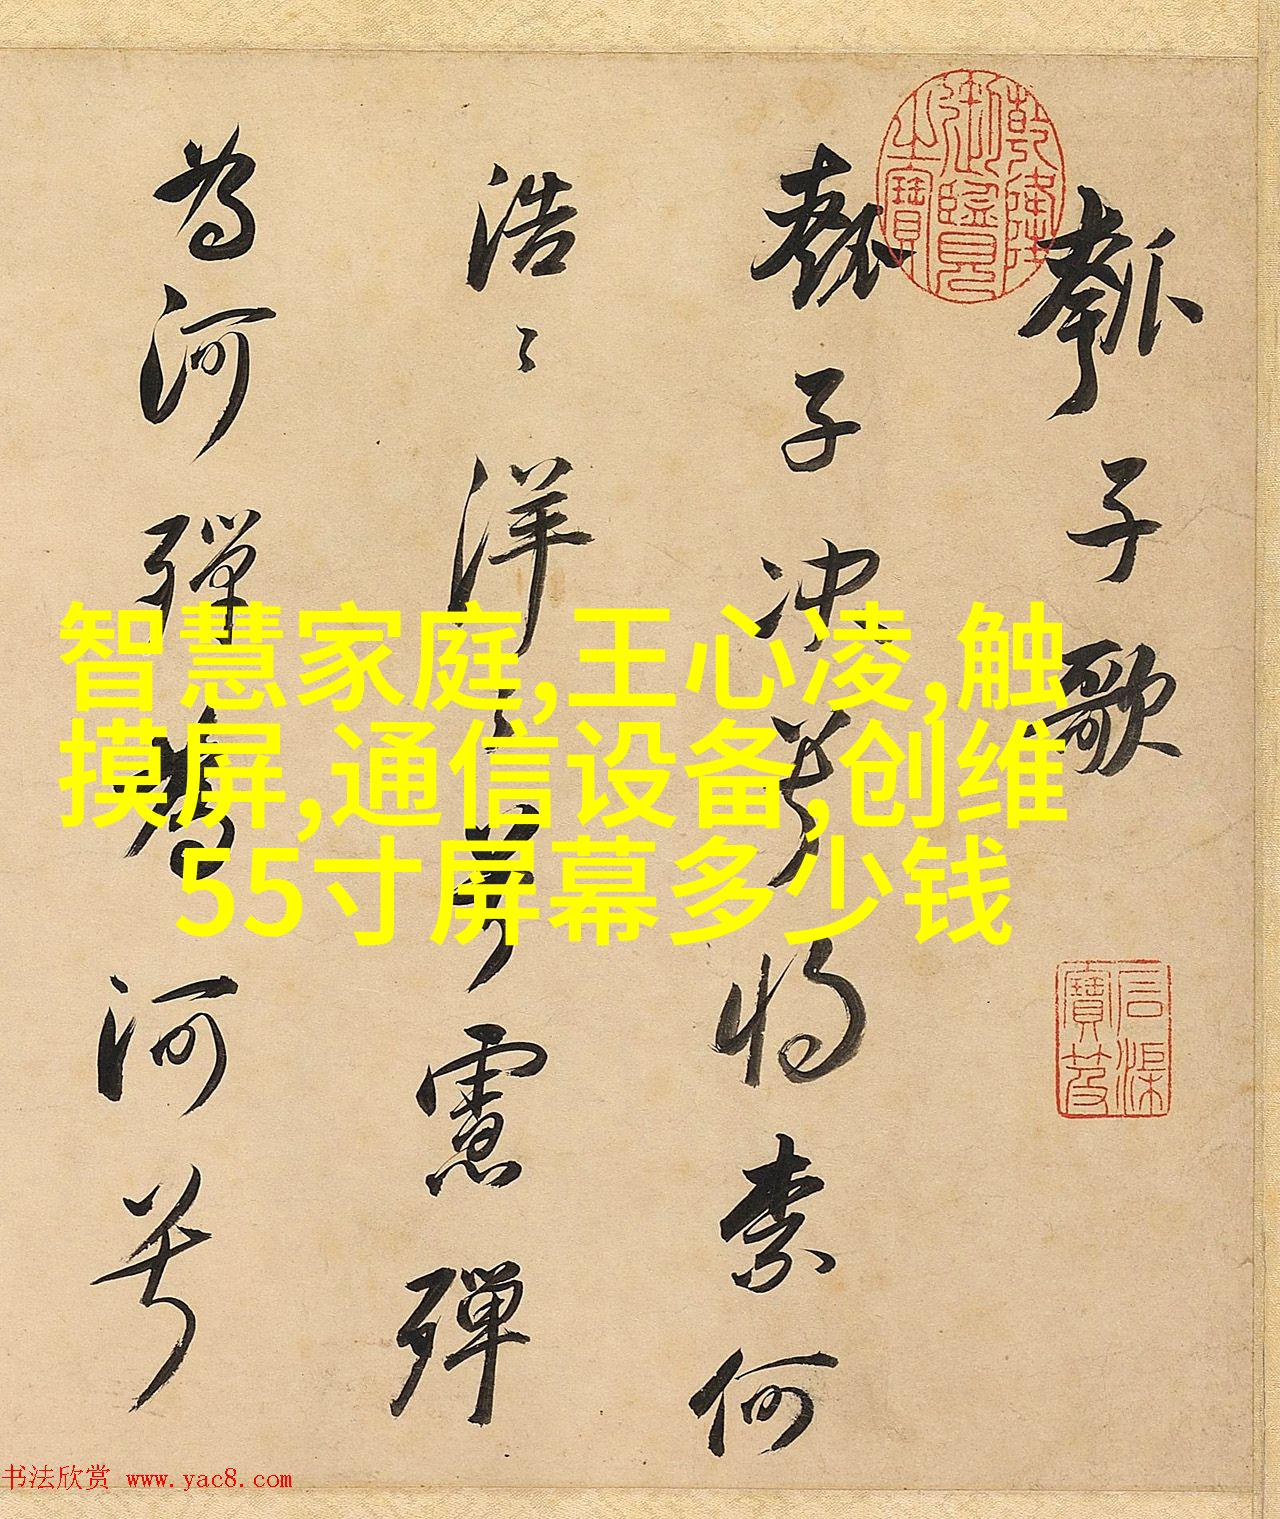 瓠子歌
瓠子決兮將柰何
浩〻洋〻兮慮殫
為河殫為河兮
乾隆御覽之寶
石渠寶笈
智慧家庭,王心凌,触
摸屏,通信设备,创维
55寸屏幕多少钱
书法欣赏 www.yac8.com